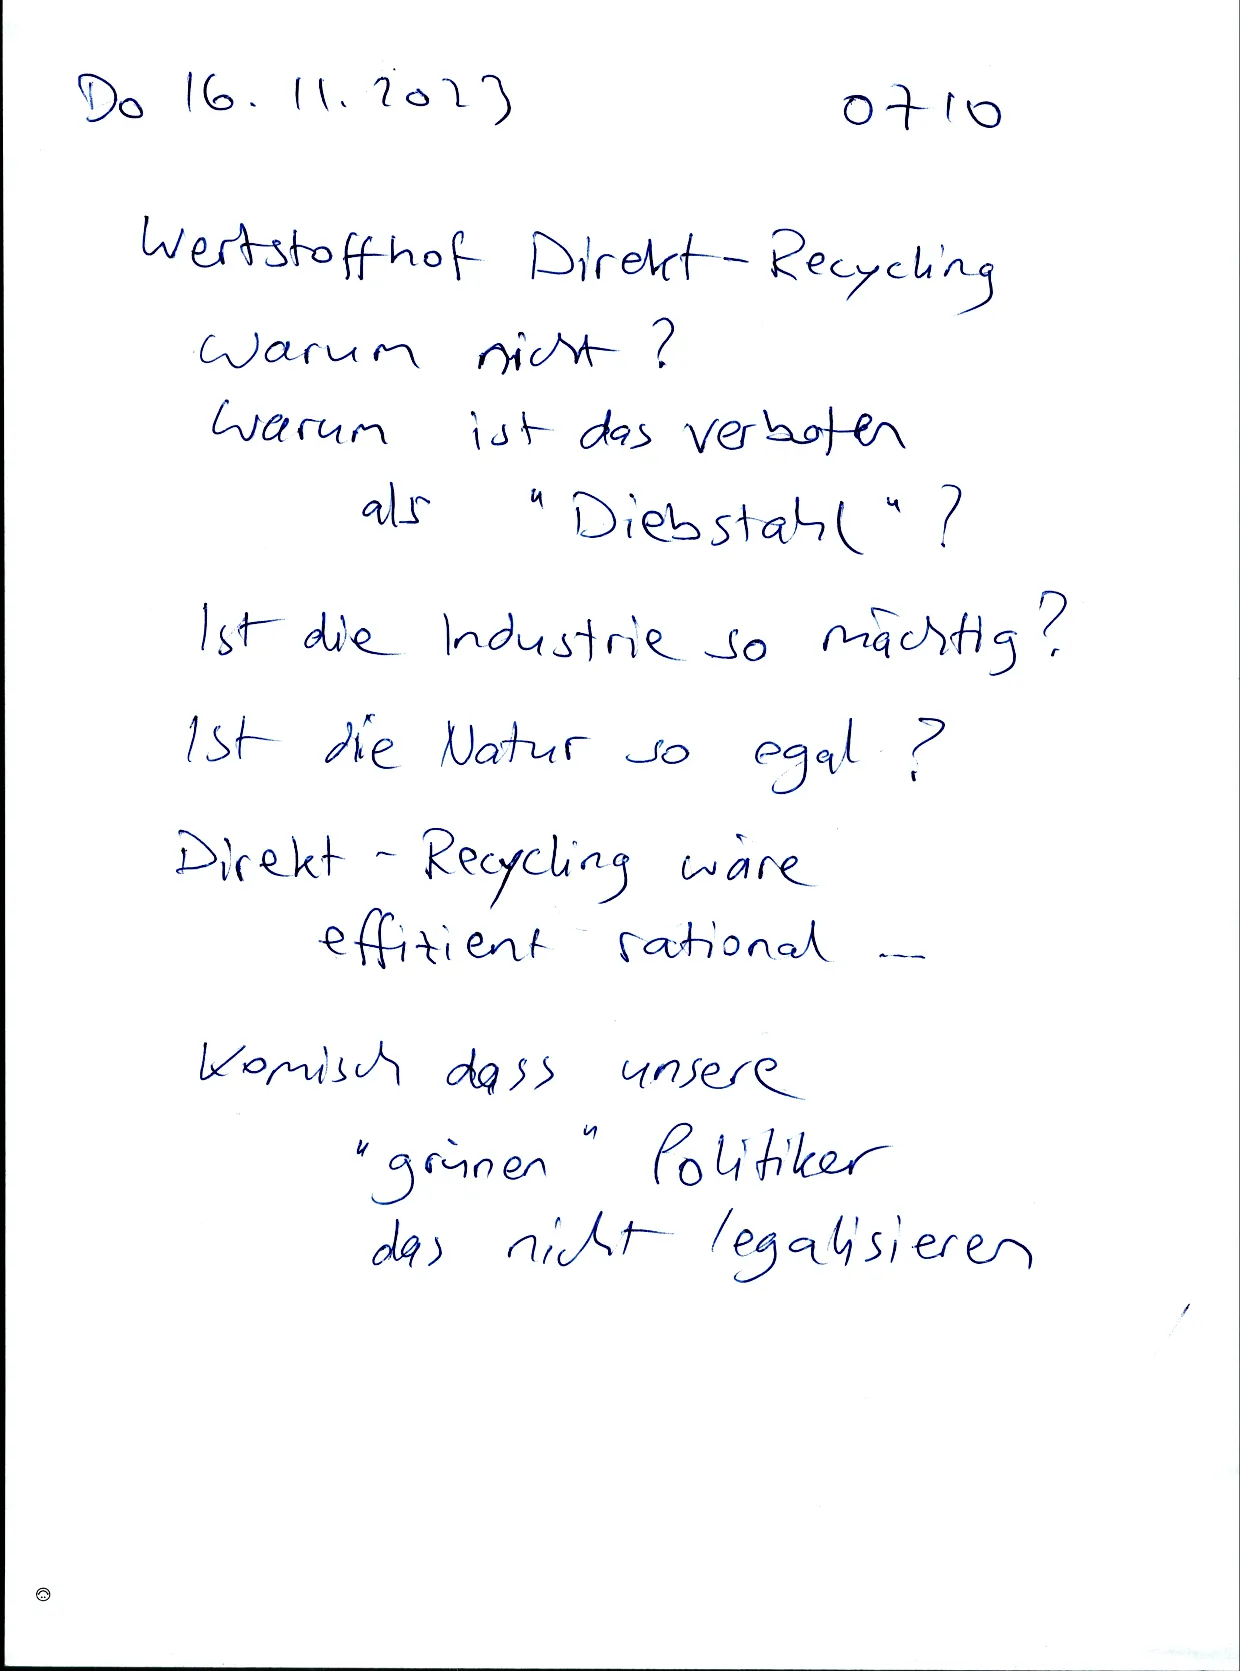 Do 16.11.2023 0710
Wertstoffhof Direkt-Recycling
Warum nicht?
Warum ist das verboten
als "Diebstahl"?
Ist die Industrie so mächtig?
Ist die Natur so egal?
Direkt-Recycling wäre
effizient rational ...
Komisch dass unsere
"grünen" Politiker
das nicht legalisieren